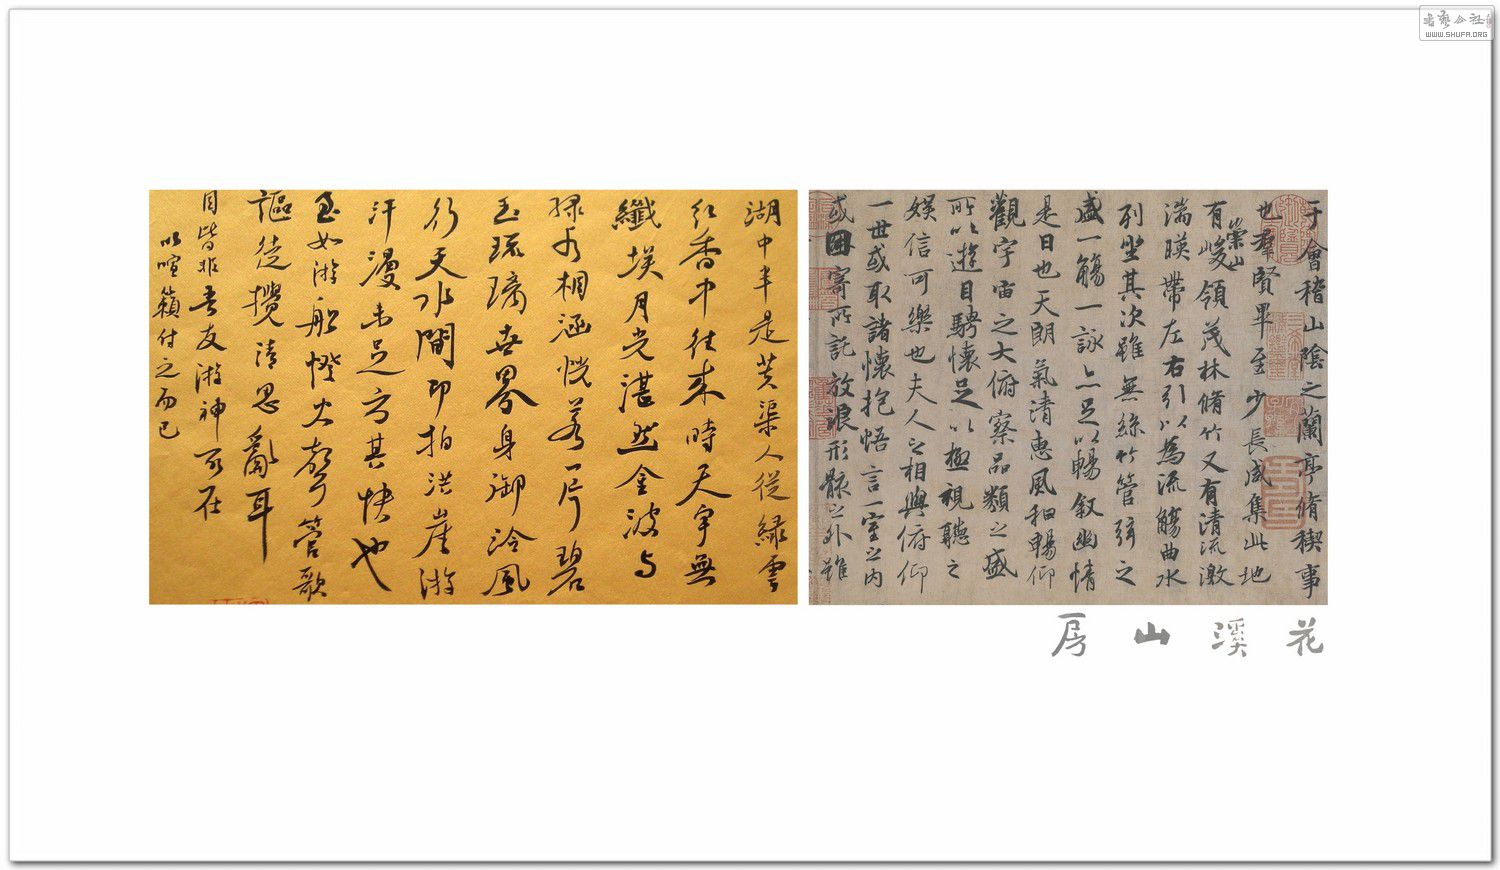 于會稽山陰之蘭亭脩稧事
也羣賢畢至少長咸集此地
有崇山峻領茂林脩竹又有清流激
湍暎帶左右引以為流觴曲水
列坐其次雖無絲竹管弦之
盛一觴一詠亦足以暢叙幽情
是日也天朗氣清惠風和暢仰
觀宇宙之大俯察品類之盛
所以遊目騁懷足以極視聽之
娛信可樂也夫人之相與俯仰
一世或取諸懷抱悟言一室之內
或因寄所託放浪形骸之外雖
湖中半是芙渠人從緑雲
紅香中往來時天宇無
纖埃月光湛然金波与
緑水相涵恍若一片碧
玉琉璃世界身御泠風
行天水間即拍洪崖游
汗漫未足方其快也
至如游船燈火聲管歌
謳徒攪清思亂耳
目皆非吾友游神所在
以喧籟付之而已
花溪山房
書藝公社
WWW.SHUFA.ORG